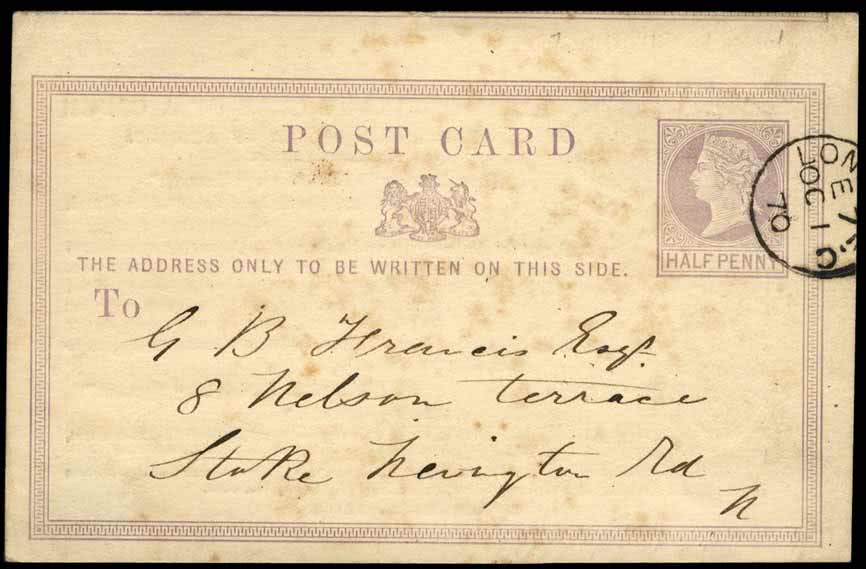 POST CARD
THE ADDRESS ONLY TO BE WRITTEN ON THIS SIDE.
HALFPENNY
LON
E 7
OC 1
70
E.C
To
G B Francis Esqr
8 Nelson terrace
Stoke Newington Rd
N